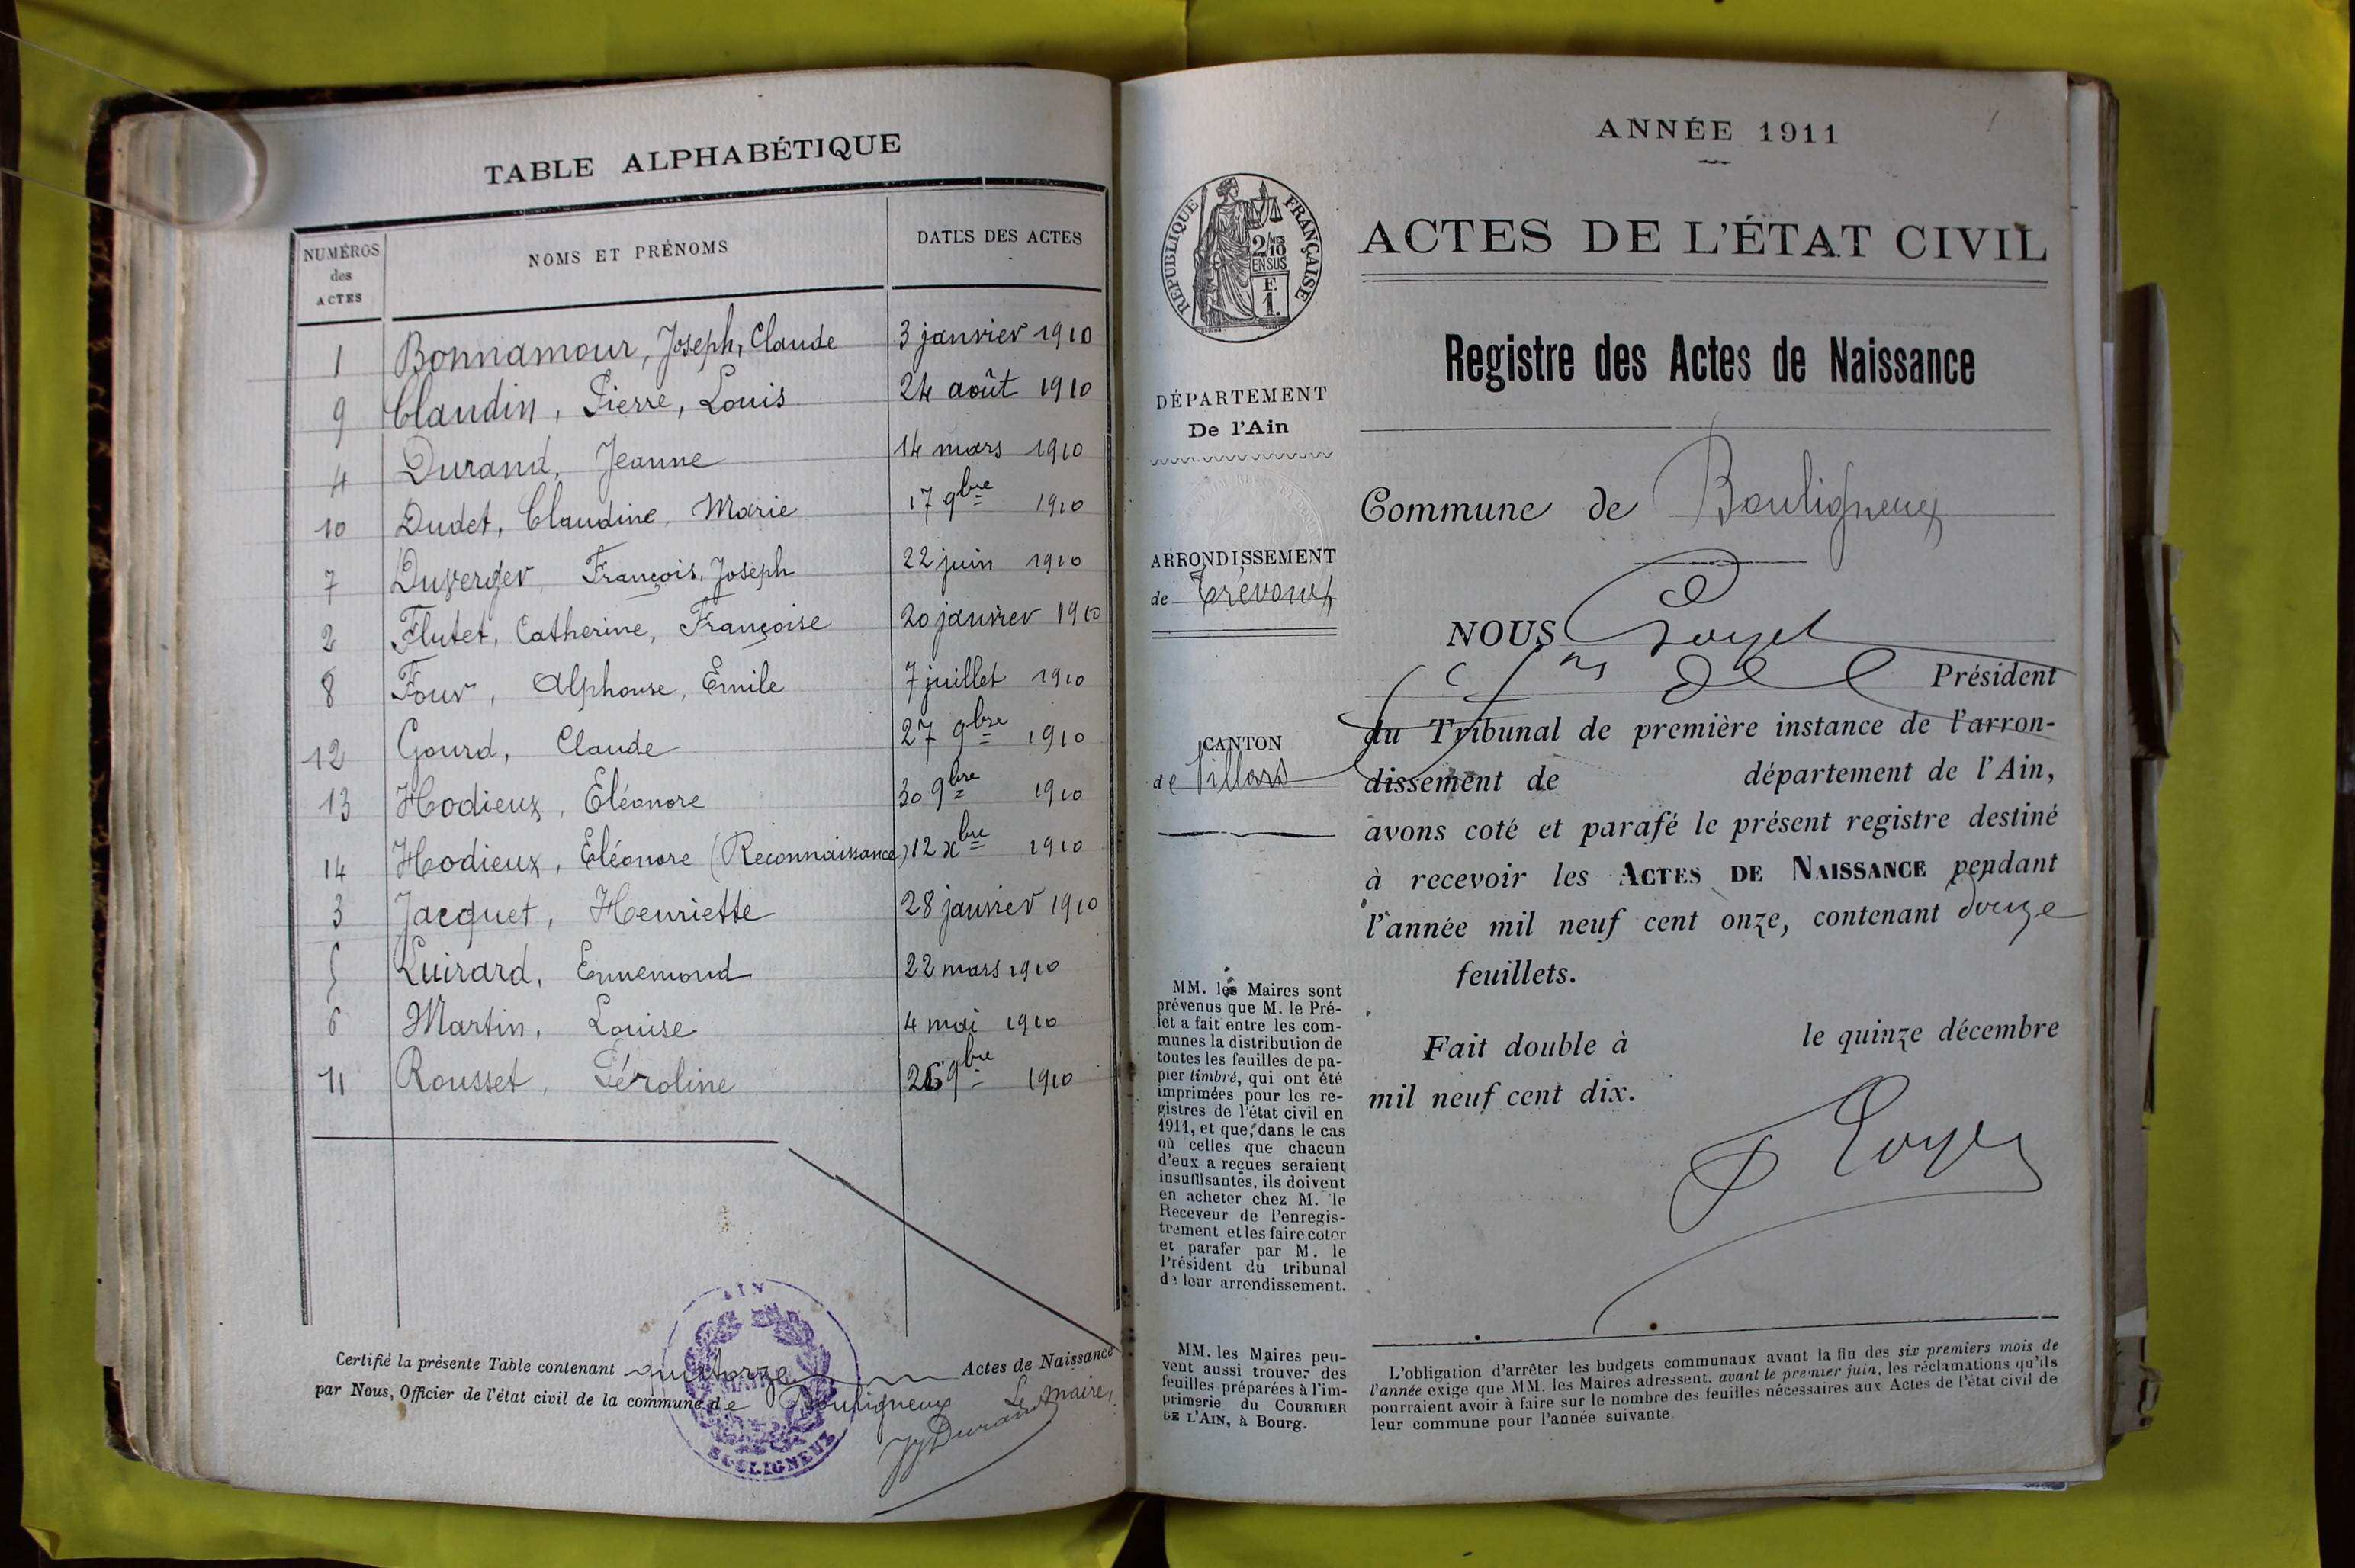 TABLE ALPHABÉTIQUE
NUMÉROS des ACTES
NOMS ET PRÉNOMS
DATES DES ACTES
1 Bonnamour, Joseph, Claude 3 janvier 1910
9 Claudin, Pierre, Louis 24 août 1910
4 Durand, Jeanne 14 mars 1910
10 Dudet, Claudine, Marie 17 9bre 1910
7 Duverger, François, Joseph 22 juin 1910
2 Flutet, Catherine, Françoise 20 janvier 1910
8 Four, Alphonse, Emile 7 juillet 1910
12 Gourd, Claude 27 9bre 1910
13 Hodieux, Eléonore 30 9bre 1910
14 Hodieux, Eléonore (Reconnaissance) 12 xbre 1910
3 Jacquet, Henriette 28 janvier 1910
5 Luirard, Ennemond 22 mars 1910
6 Martin, Louise 4 mai 1910
11 Rousset, Péroline 26 9bre 1910
Certifié la présente Table contenant quatorze Actes de Naissance
par Nous, Officier de l'état civil de la commune de Bouligneux
Le Maire,
JyDurand
AIN
MAIRIE
BOULIGNEUX
ANNÉE 1911
RÉPUBLIQUE FRANÇAISE
2/10 MES
EN SUS
F.
1.
ACTES DE L'ÉTAT CIVIL
Registre des Actes de Naissance
DÉPARTEMENT
De l'Ain
Commune de Bouligneux
ARRONDISSEMENT
de Trévoux
NOUS Loyet
Président
du Tribunal de première instance de l'arron-
CANTON
de Villars
dissement de département de l'Ain,
avons coté et parafé le présent registre destiné
à recevoir les ACTES DE NAISSANCE pendant
l'année mil neuf cent onze, contenant douze
feuillets.
Fait double à le quinze décembre
mil neuf cent dix.
MM. les Maires sont
prévenus que M. le Pré-
fet a fait entre les com-
munes la distribution de
toutes les feuilles de pa-
pier timbré, qui ont été
imprimées pour les re-
gistres de l'état civil en
1911, et que, dans le cas
où celles que chacun
d'eux a reçues seraient
insuffisantes, ils doivent
en acheter chez M. le
Receveur de l'enregis-
trement et les faire coter
et parafer par M. le
Président du tribunal
de leur arrondissement.
MM. les Maires peu-
vent aussi trouver des
feuilles préparées à l'im-
primerie du COURRIER
DE L'AIN, à Bourg.
L'obligation d'arrêter les budgets communaux avant la fin des six premiers mois de
l'année exige que MM. les Maires adressent, avant le premier juin, les réclamations qu'ils
pourraient avoir à faire sur le nombre des feuilles nécessaires aux Actes de l'état civil de
leur commune pour l'année suivante.